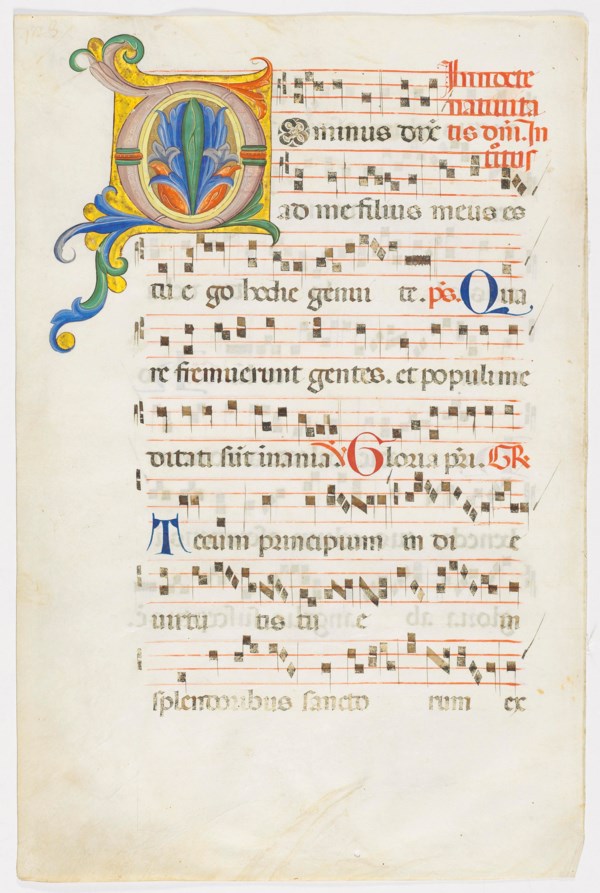 In nocte
natiuita
Dominus dix̄
tis dñi. In
tͦitus
ad me filius meus es
tu e go hodie genui te. ps. Qua
re fremuerunt gentes. et populi me
ditati sūt inania. ℣ Gloria pr̄i. GR
Tecum principium in di e
uirtu tis tu e in
splendoribus sancto rum ex